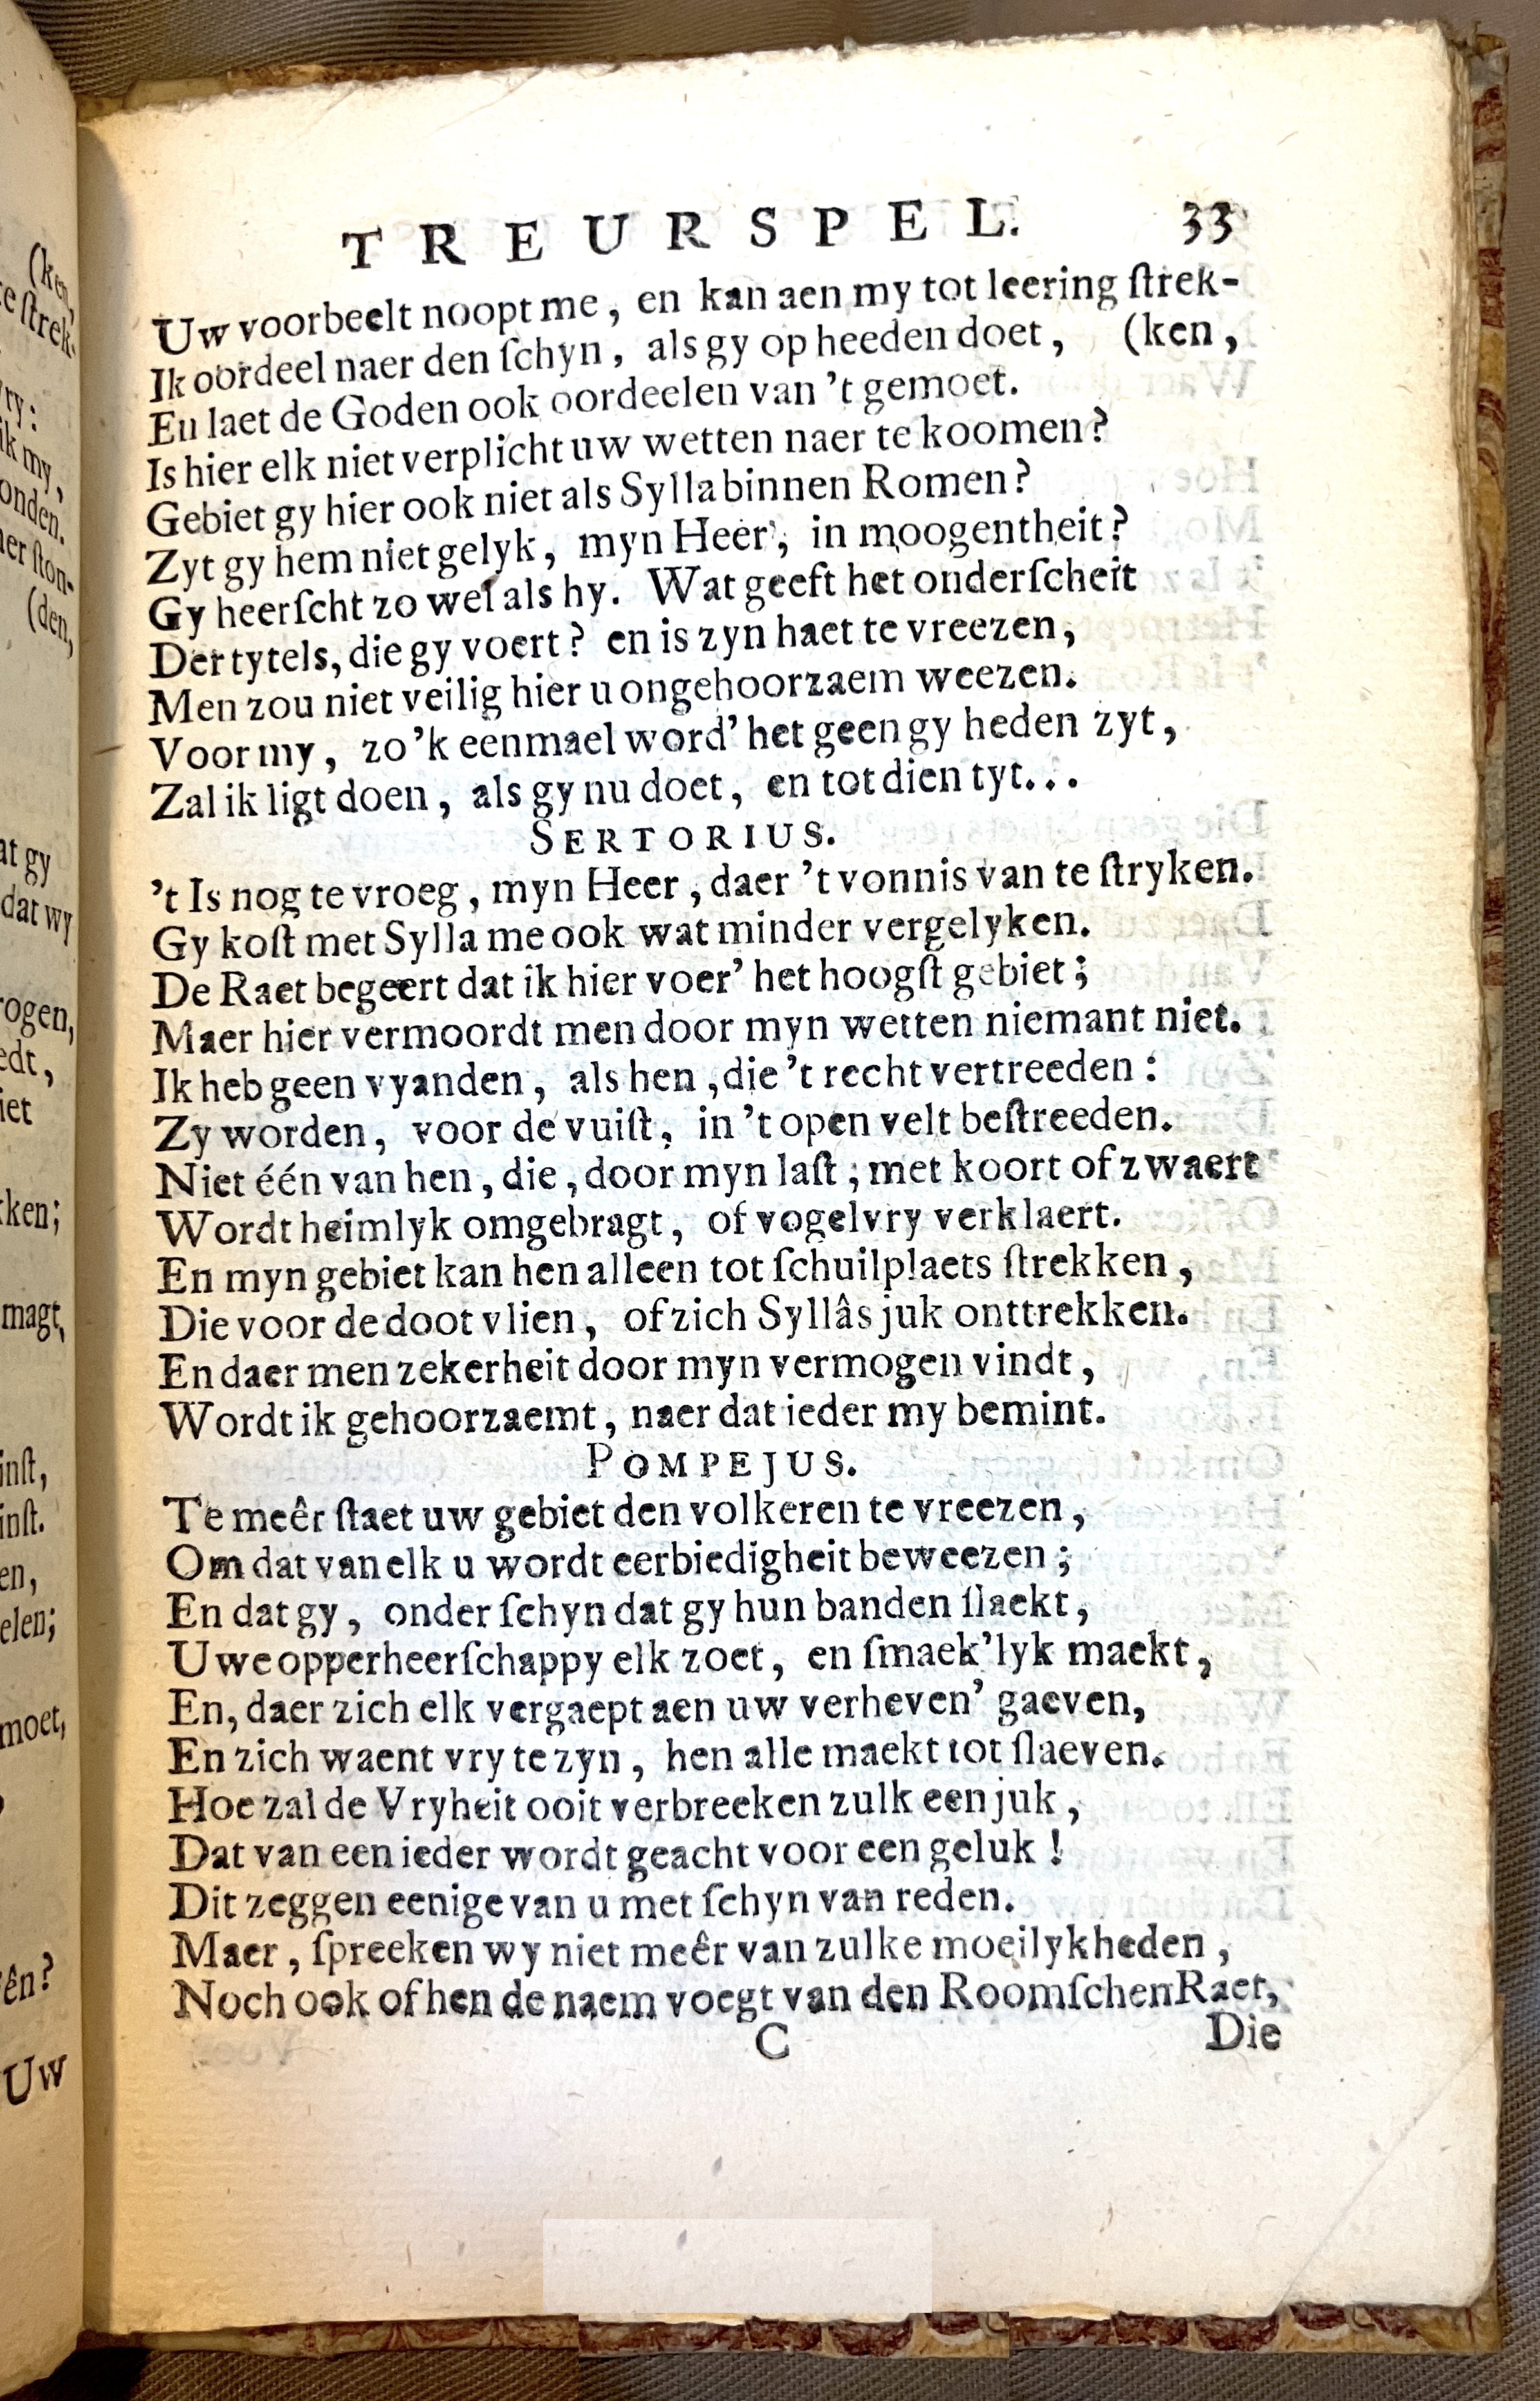 TREURSPEL. 33
Uw voorbeelt noopt me, en kan aen my tot leering ſtrek-
Ik oordeel naer den ſchyn, als gy op heeden doet, (ken,
En laet de Goden ook oordeelen van 't gemoet.
Is hier elk niet verplicht uw wetten naer te koomen?
Gebiet gy hier ook niet als Sylla binnen Romen?
Zyt gy hem niet gelyk, myn Heer, in moogentheit?
Gy heerſcht zo wel als hy. Wat geeft het onderſcheit
Der tytels, die gy voert? en is zyn haet te vreezen,
Men zou niet veilig hier u ongehoorzaem weezen.
Voor my, zo 'k eenmael word' het geen gy heden zyt,
Zal ik ligt doen, als gy nu doet, en tot dien tyt...
SERTORIUS.
't Is nog te vroeg, myn Heer, daer 't vonnis van te ſtryken.
Gy koſt met Sylla me ook wat minder vergelyken.
De Raet begeert dat ik hier voer' het hoogſt gebiet;
Maer hier vermoordt men door myn wetten niemant niet.
Ik heb geen vyanden, als hen, die 't recht vertreeden:
Zy worden, voor de vuiſt, in 't open velt beſtreeden.
Niet één van hen, die, door myn laſt, met koort of zwaert
Wordt heimlyk omgebragt, of vogelvry verklaert.
En myn gebiet kan hen alleen tot ſchuilplaets ſtrekken,
Die voor de doot vlien, of zich Syllâs juk onttrekken.
En daer men zekerheit door myn vermogen vindt,
Wordt ik gehoorzaemt, naer dat ieder my bemint.
POMPEJUS.
Te meêr ſtaet uw gebiet den volkeren te vreezen,
Om dat van elk u wordt eerbiedigheit beweezen;
En dat gy, onder ſchyn dat gy hun banden ſlaekt,
Uwe opperheerſchappy elk zoet, en ſmaek'lyk maekt,
En, daer zich elk vergaept aen uw verheven' gaeven,
En zich waent vry te zyn, hen alle maekt tot ſlaeven.
Hoe zal de Vryheit ooit verbreeken zulk een juk,
Dat van een ieder wordt geacht voor een geluk!
Dit zeggen eenige van u met ſchyn van reden.
Maer, ſpreeken wy niet meêr van zulke moeilykheden,
Noch ook of hen de naem voegt van den Roomſchen Raet,
C Die